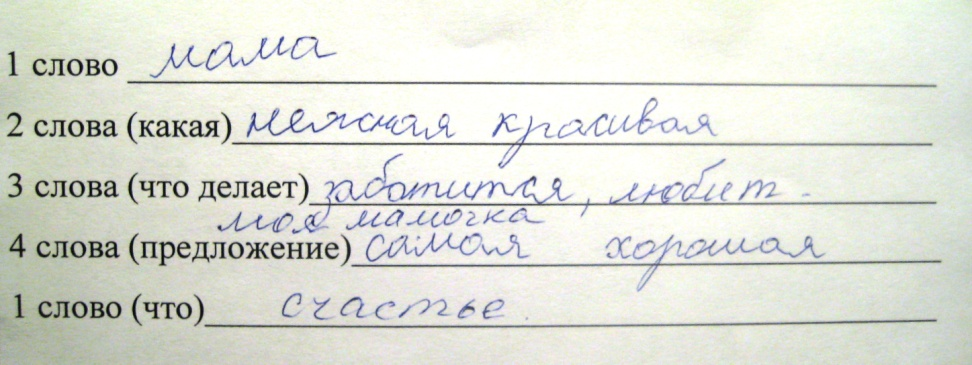 1 слово мама
2 слова (какая) нежная красивая
3 слова (что делает) заботится, любит -
моя мамочка
4 слова (предложение) самая хорошая
1 слово (что) счастье.